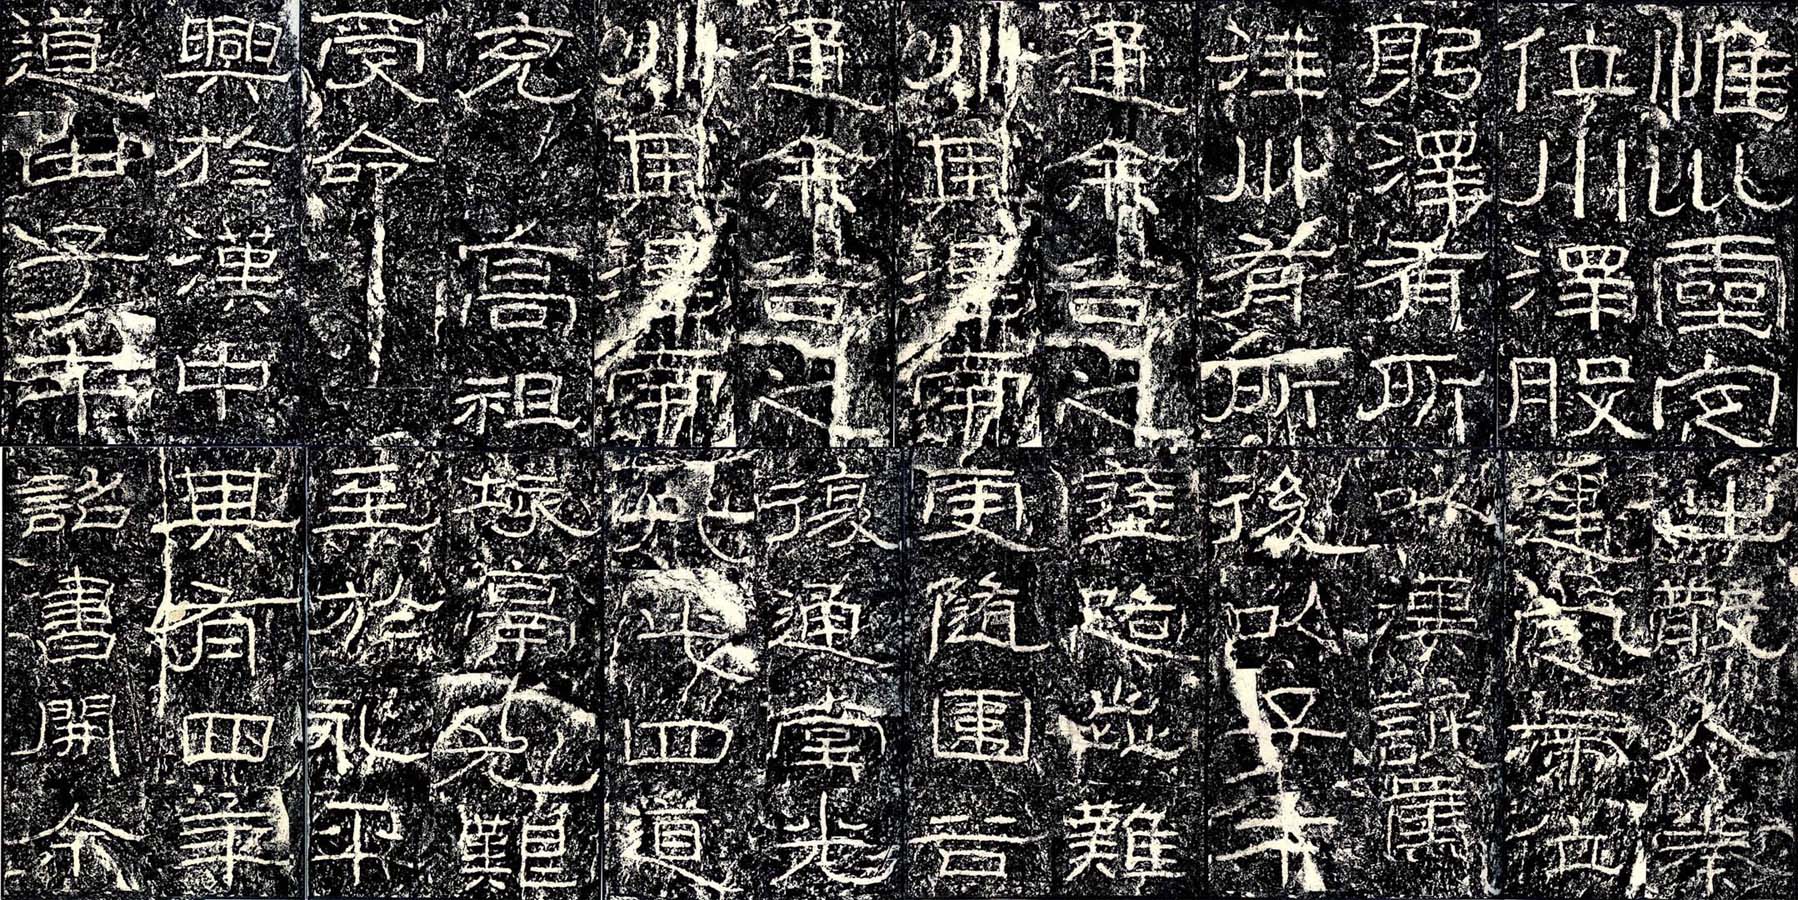 惟巛靈定
位川澤股
躬澤有所
注川有所
通余谷之
川其澤南
通余谷之
川其澤南
充高祖
受命
興於漢中
道由子午
出散入秦
建定帝位
以漢詆焉
後以子午
塗路歰難
更隨圍谷
復通堂光
凡此四道
垓鬲尤艱
至於永平
其有四年
詔書開余